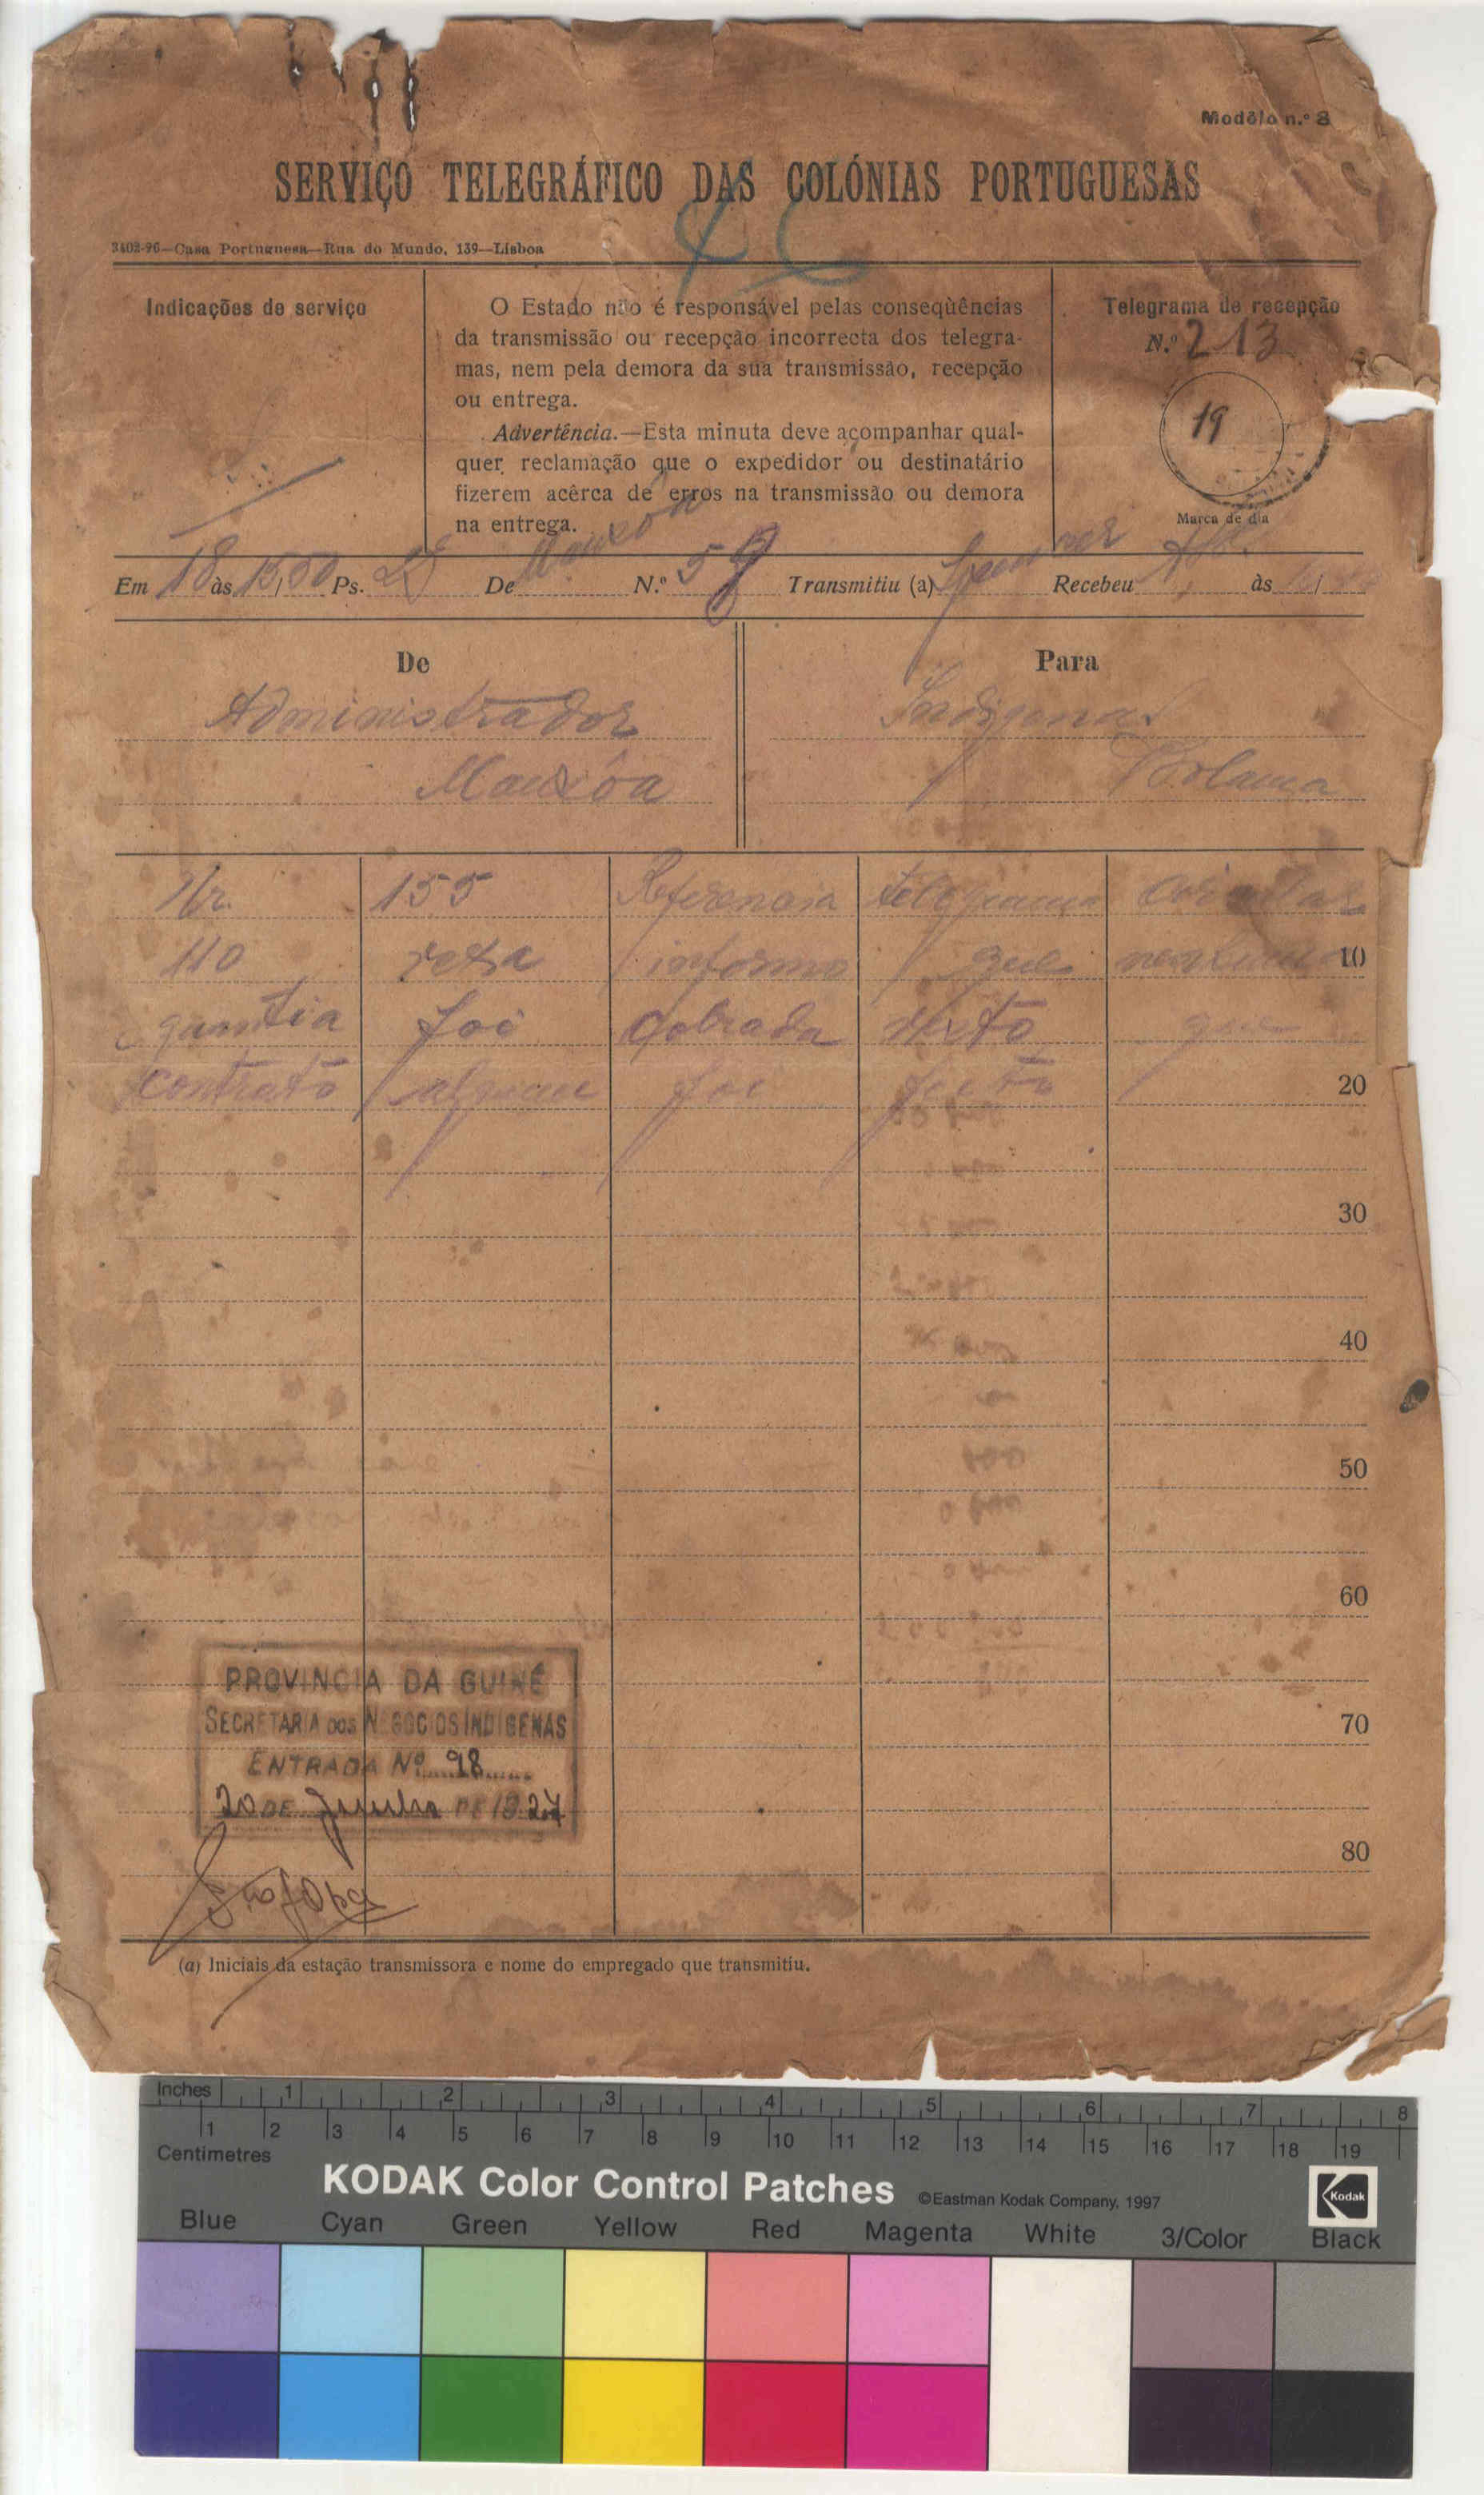 Modêlo n.º 8
SERVIÇO TELEGRÁFICO DAS COLÓNIAS PORTUGUESAS
3402-96—Casa Portuguesa—Rua do Mundo, 139—Lisboa
Indicações de serviço
O Estado não é responsável pelas conseqùências
da transmissão ou recepção incorrecta dos telegra-
mas, nem pela demora da sua transmissão, recepção
ou entrega.
Advertência.—Esta minuta deve acompanhar qual-
quer reclamação que o expedidor ou destinatário
fizerem acêrca de erros na transmissão ou demora
na entrega.
Telegrama de recepção
N.º 213
19
Marca de dia
Em 18 às 15/50 Ps. De Mansôa N.º 59 Transmitiu (a) Recebeu às /
De
Administrador
Mansôa
Para
Indigenas
Bolama
Nr. 155 Referencia telegrama circular
110 resa informo que nenhuma 10
quantia foi cobrada visto que
contrato algum foi feito 20
30
40
50
60
70
80
PROVINCIA DA GUINÉ
SECRETARIA DOS NEGOCIOS INDIGENAS
ENTRADA Nº 98
20 DE Junho DE 1927
(a) Iniciais da estação transmissora e nome do empregado que transmitiu.
Inches 1 2 3 4 5 6 7 8
1 2 3 4 5 6 7 8 9 10 11 12 13 14 15 16 17 18 19
Centimetres
KODAK Color Control Patches ©Eastman Kodak Company, 1997 Kodak
Blue Cyan Green Yellow Red Magenta White 3/Color Black